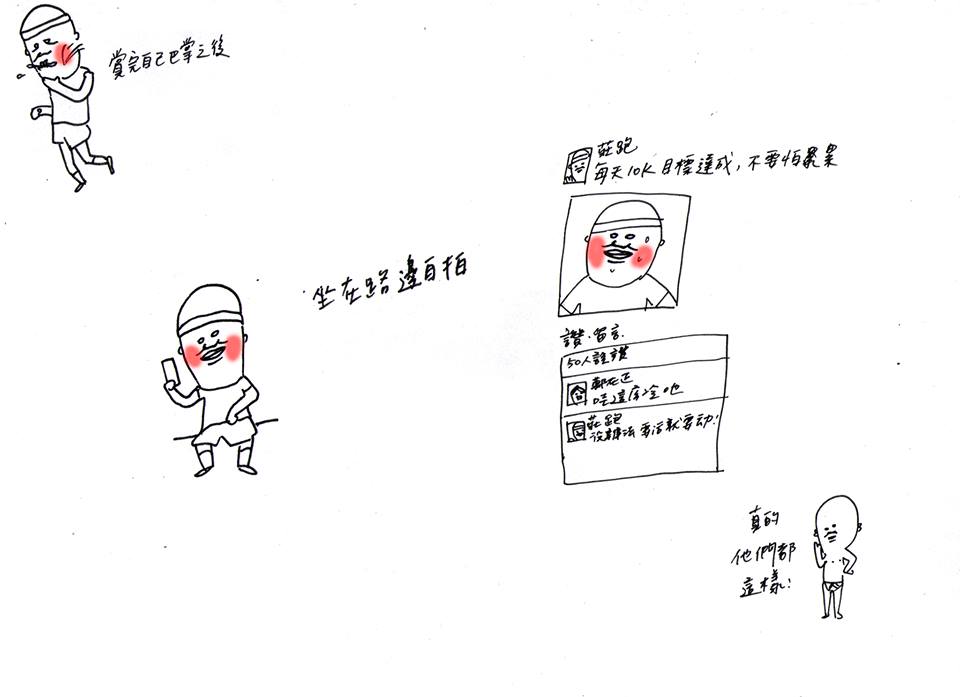 賞完自己巴掌之後
坐在路邊自拍
莊跑
每天10K目標達成,不要怕累累
讚.留言.
50人說讚
鄭在正
哇這麼冷吔
莊跑
沒辦法 要活就要动!
真的
他們都
這樣!